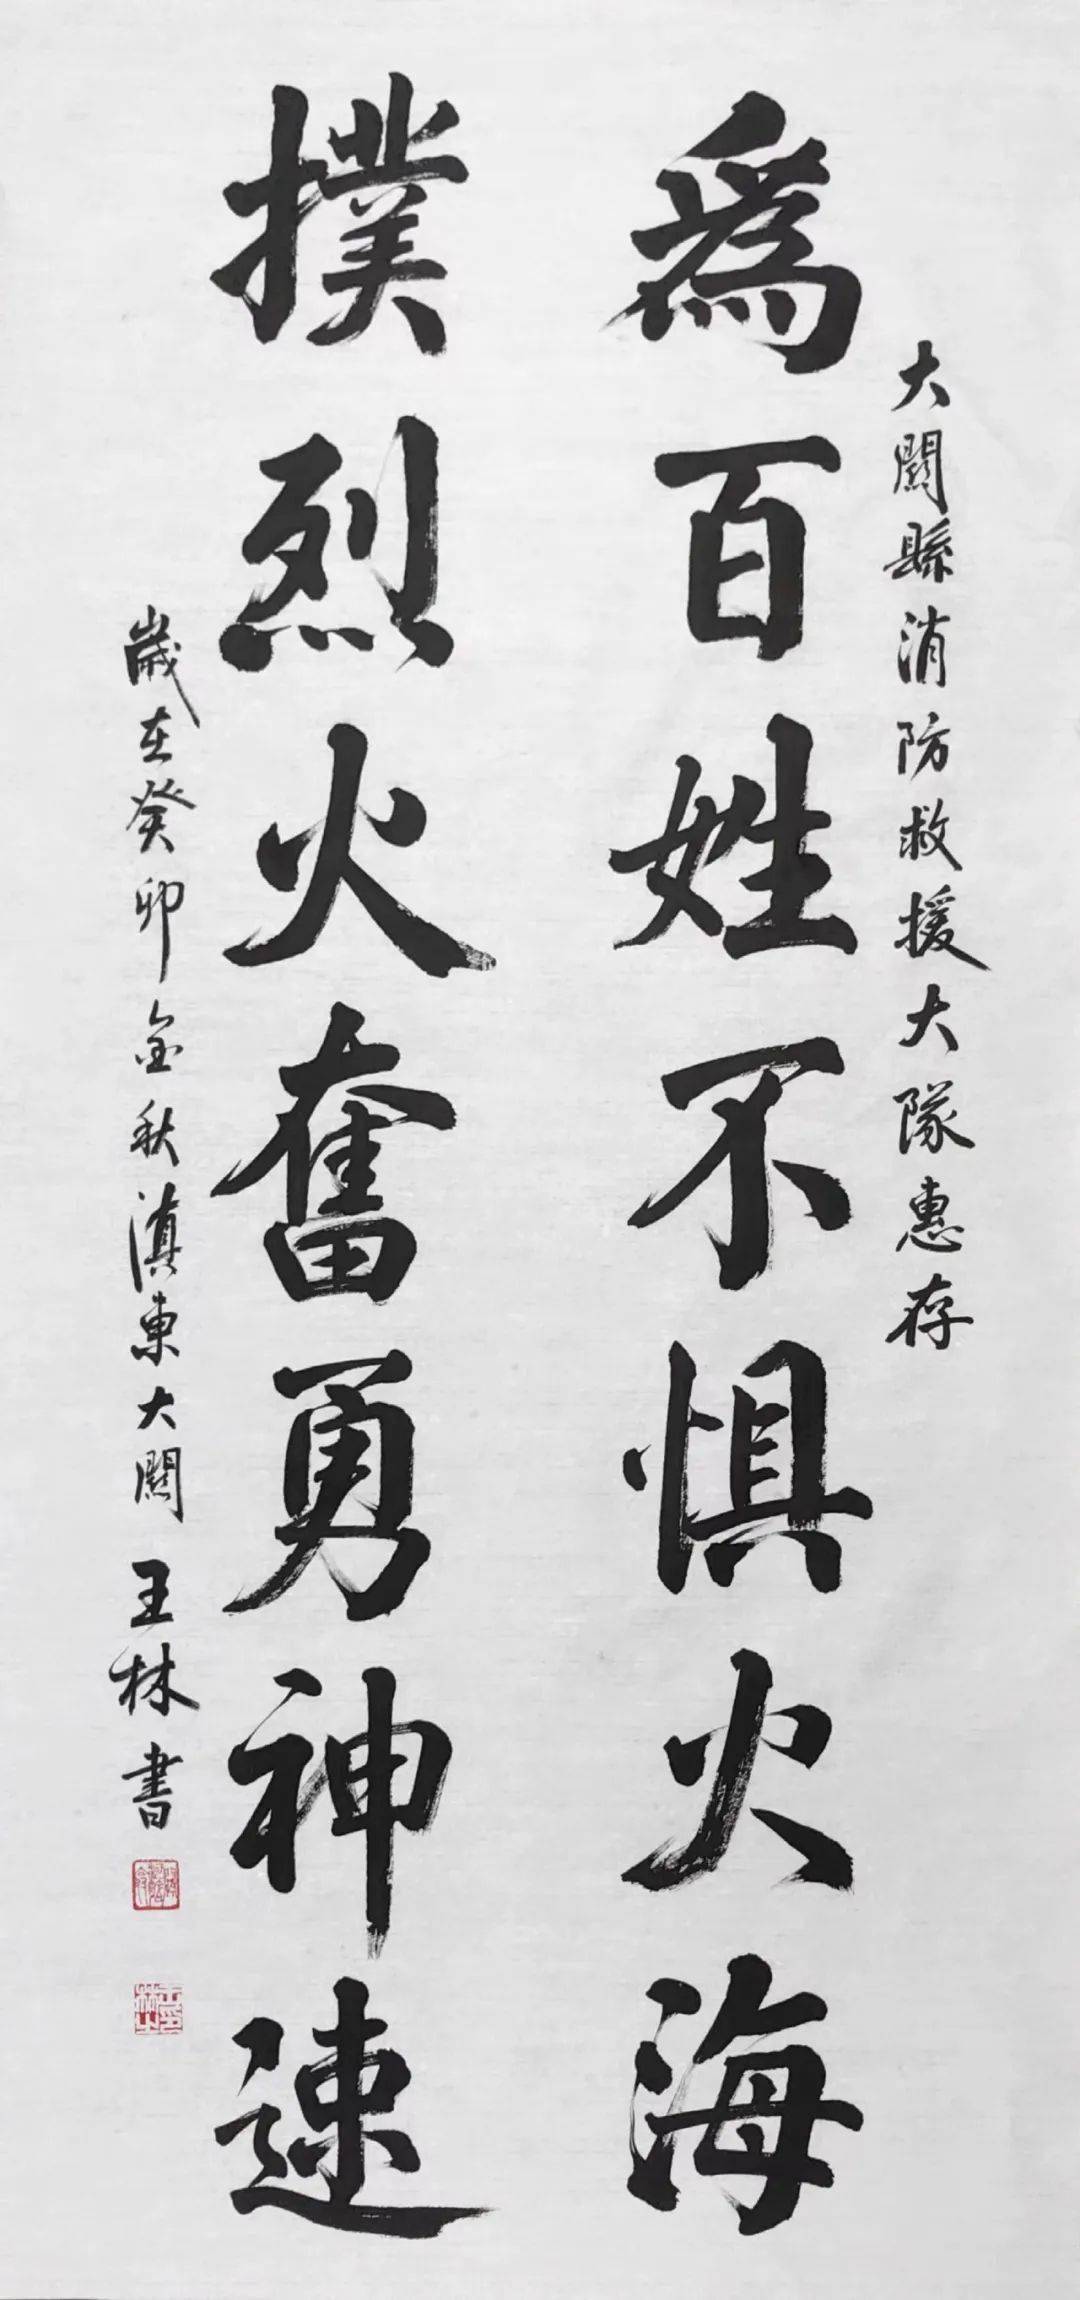 大關縣消防救援大隊惠存
為百姓不惧火海
撲烈火奮勇神速
歲在癸卯金秋滇東大關王林書